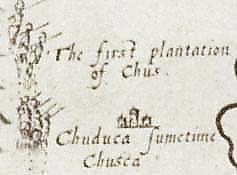 The first plantation
of Chus.
Chuduca sumetime
Chusca